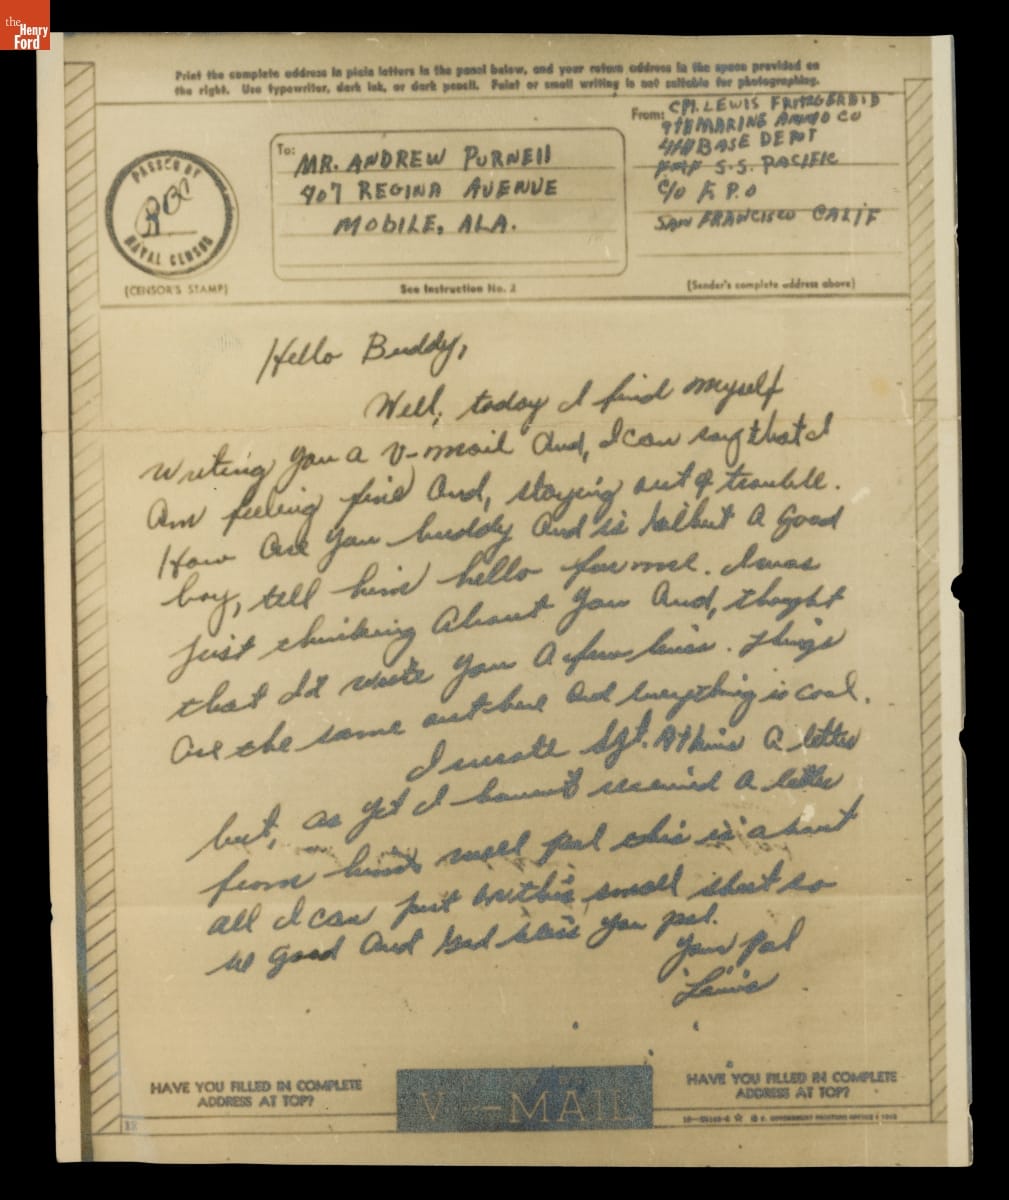 the
Henry
Ford
Print the complete address in plain letters in the panel below, and your return address in the space provided on
the right. Use typewriter, dark ink, or dark pencil. Faint or small writing is not suitable for photographing.
PASSED BY
NAVAL CENSOR
(CENSOR'S STAMP)
To:
MR. ANDREW PURNELL
907 REGINA AVENUE
MOBILE, ALA.
See Instruction No. 2
From: CPL. LEWIS FITZGERALD
9TH MARINE AMMO CO
4TH BASE DEPOT
FMF S.S. PACIFIC
C/O F.P.O
SAN FRANCISCO CALIF
(Sender's complete address above)
Hello Buddy,
Well, today I find myself
writing you a V-mail and, I can say that I
am feeling fine and, staying out of trouble.
How are you buddy and is a good
boy, tell him hello for me. I was
just thinking about you and, thought
that I'd write you a few lines. Things
are the same out here and everything is cool.
I wrote Sgt. Atkins a letter
but, as yet I haven't received a letter
from him. Well pal this is about
all I can put on this small sheet so
be good and God bless you pal.
Your Pal
Lewis
HAVE YOU FILLED IN COMPLETE
ADDRESS AT TOP?
V--MAIL
HAVE YOU FILLED IN COMPLETE
ADDRESS AT TOP?
U.S. GOVERNMENT PRINTING OFFICE